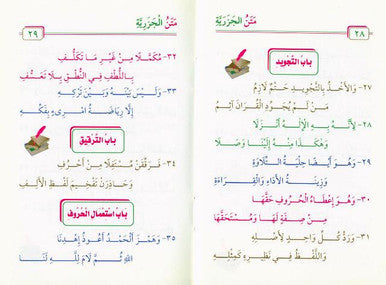 ٢٨
مَتْنُ الْجَزَرِيَّةِ
بَابُ التَّجْوِيدِ
٢٧- وَالأَخْذُ بِالتَّجْوِيدِ حَتْمٌ لَازِمُ
مَنْ لَمْ يُجَوِّدِ الْقُرَآنَ آثِمُ
٢٨- لِأَنَّهُ بِهِ الإِلَهُ أَنْزَلَا
وَهَكَذَا مِنْهُ إِلَيْنَا وَصَلَا
٢٩- وَهُوَ أَيْضًا حِلْيَةُ التِّلَاوَةِ
وَزِينَةُ الأَدَاءِ وَالْقِرَاءَةِ
٣٠- وَهُوَ إِعْطَاءُ الْحُرُوفِ حَقَّهَا
مِنْ صِفَةٍ لَهَا وَمُسْتَحَقَّهَا
٣١- وَرَدُّ كُلِّ وَاحِدٍ لِأَصْلِهِ
وَاللَّفْظُ فِي نَظِيرِهِ كَمِثْلِهِ
مَتْنُ الْجَزَرِيَّةِ
٢٩
٣٢- مُكَمَّلًا مِنْ غَيْرِ مَا تَكَلُّفِ
بِاللُّطْفِ فِي النُّطْقِ بِلَا تَعَسُّفِ
٣٣- وَلَيْسَ بَيْنَهُ وَبَيْنَ تَرْكِهِ
إِلَّا رِيَاضَةُ امْرِئٍ بِفَكِّهِ
بَابُ التَّرْقِيقِ
٣٤- فَرَقِّقَنْ مُسْتَفِلًا مِنْ أَحْرُفِ
وَحَاذِرَنْ تَفْخِيمَ لَفْظِ الأَلِفِ
بَابُ اسْتِعْمَالِ الْحُرُوفِ
٣٥- وَهَمْزَ أَلْحَمْدُ أَعُوذُ إِهْدِنَا
اللهُ ثُمَّ لَامَ لِلَّهِ لَنَا